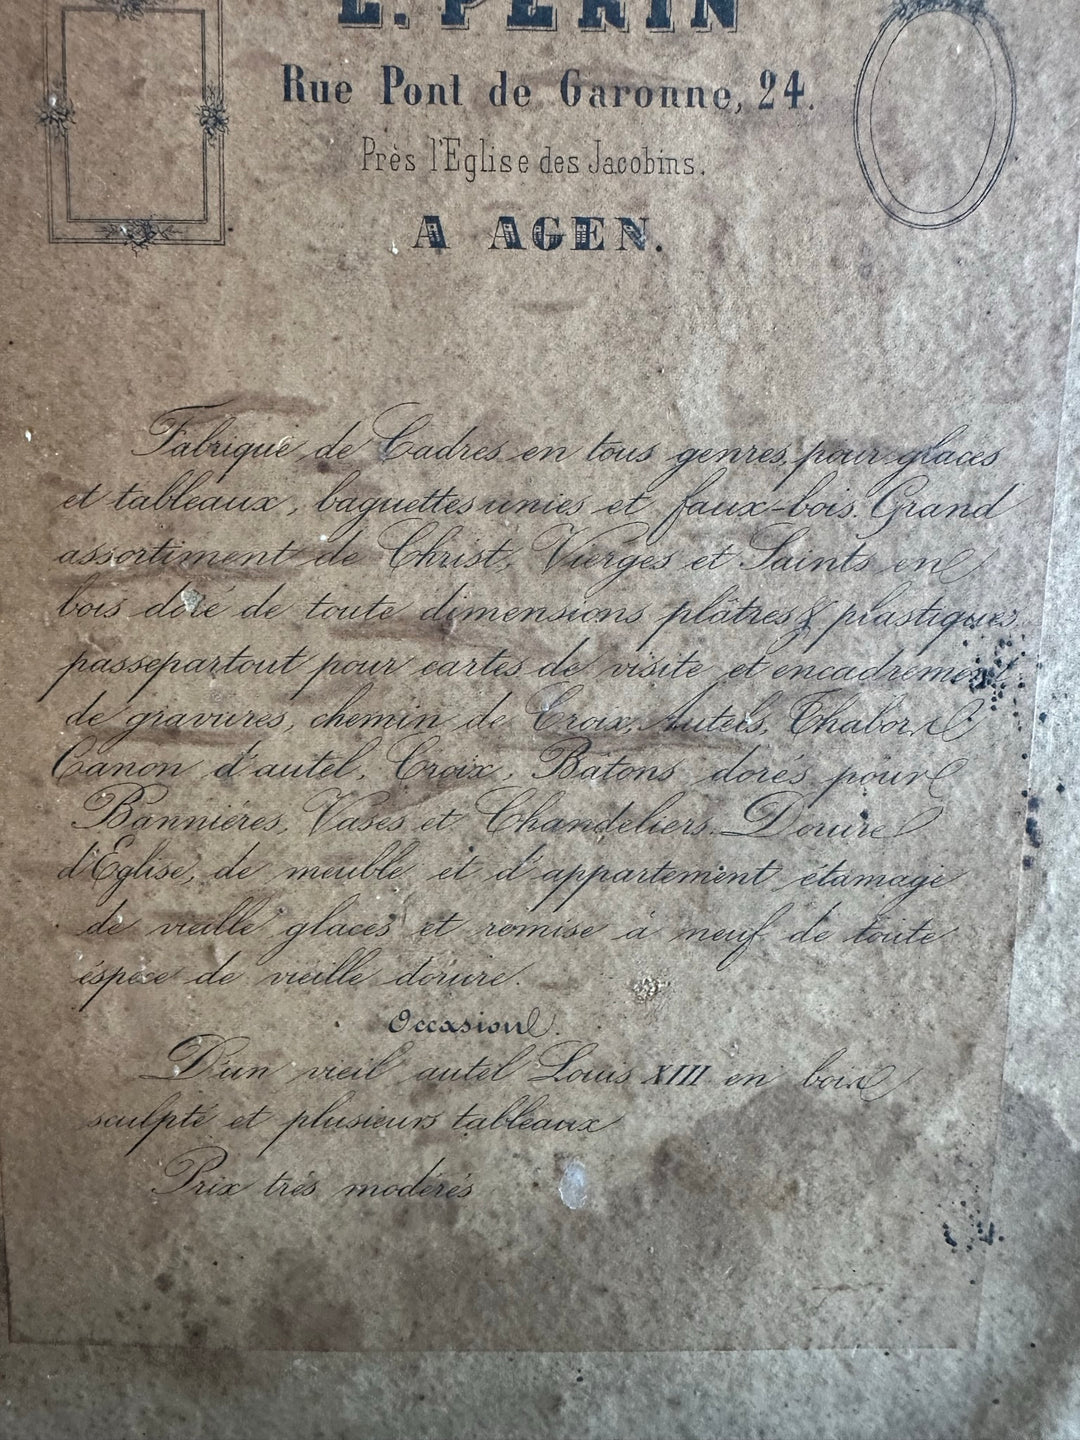 L. PERIN
Rue Pont de Garonne, 24.
Près l'Eglise des Jacobins.
A AGEN.
Fabrique de Cadres en tous genres, pour glaces
et tableaux, baguettes unies et faux-bois. Grand
assortiment de Christ, Vierges et Saints en
bois doré de toute dimensions plâtres & plastiques.
passepartout pour cartes de visite et encadrement
de gravures, chemin de Croix, Autels, Thabor,
Canon d'autel, Croix, Batons dorés pour
Bannières, Vases et Chandeliers. Dorure
d'Eglise, de meuble et d'appartement étamage
de vieille glaces et remise à neuf de toute
éspece de vieille dorure.
Occasion.
D'un vieil autel Louis XIII en bois
sculpté et plusieurs tableaux
Prix trés modérés